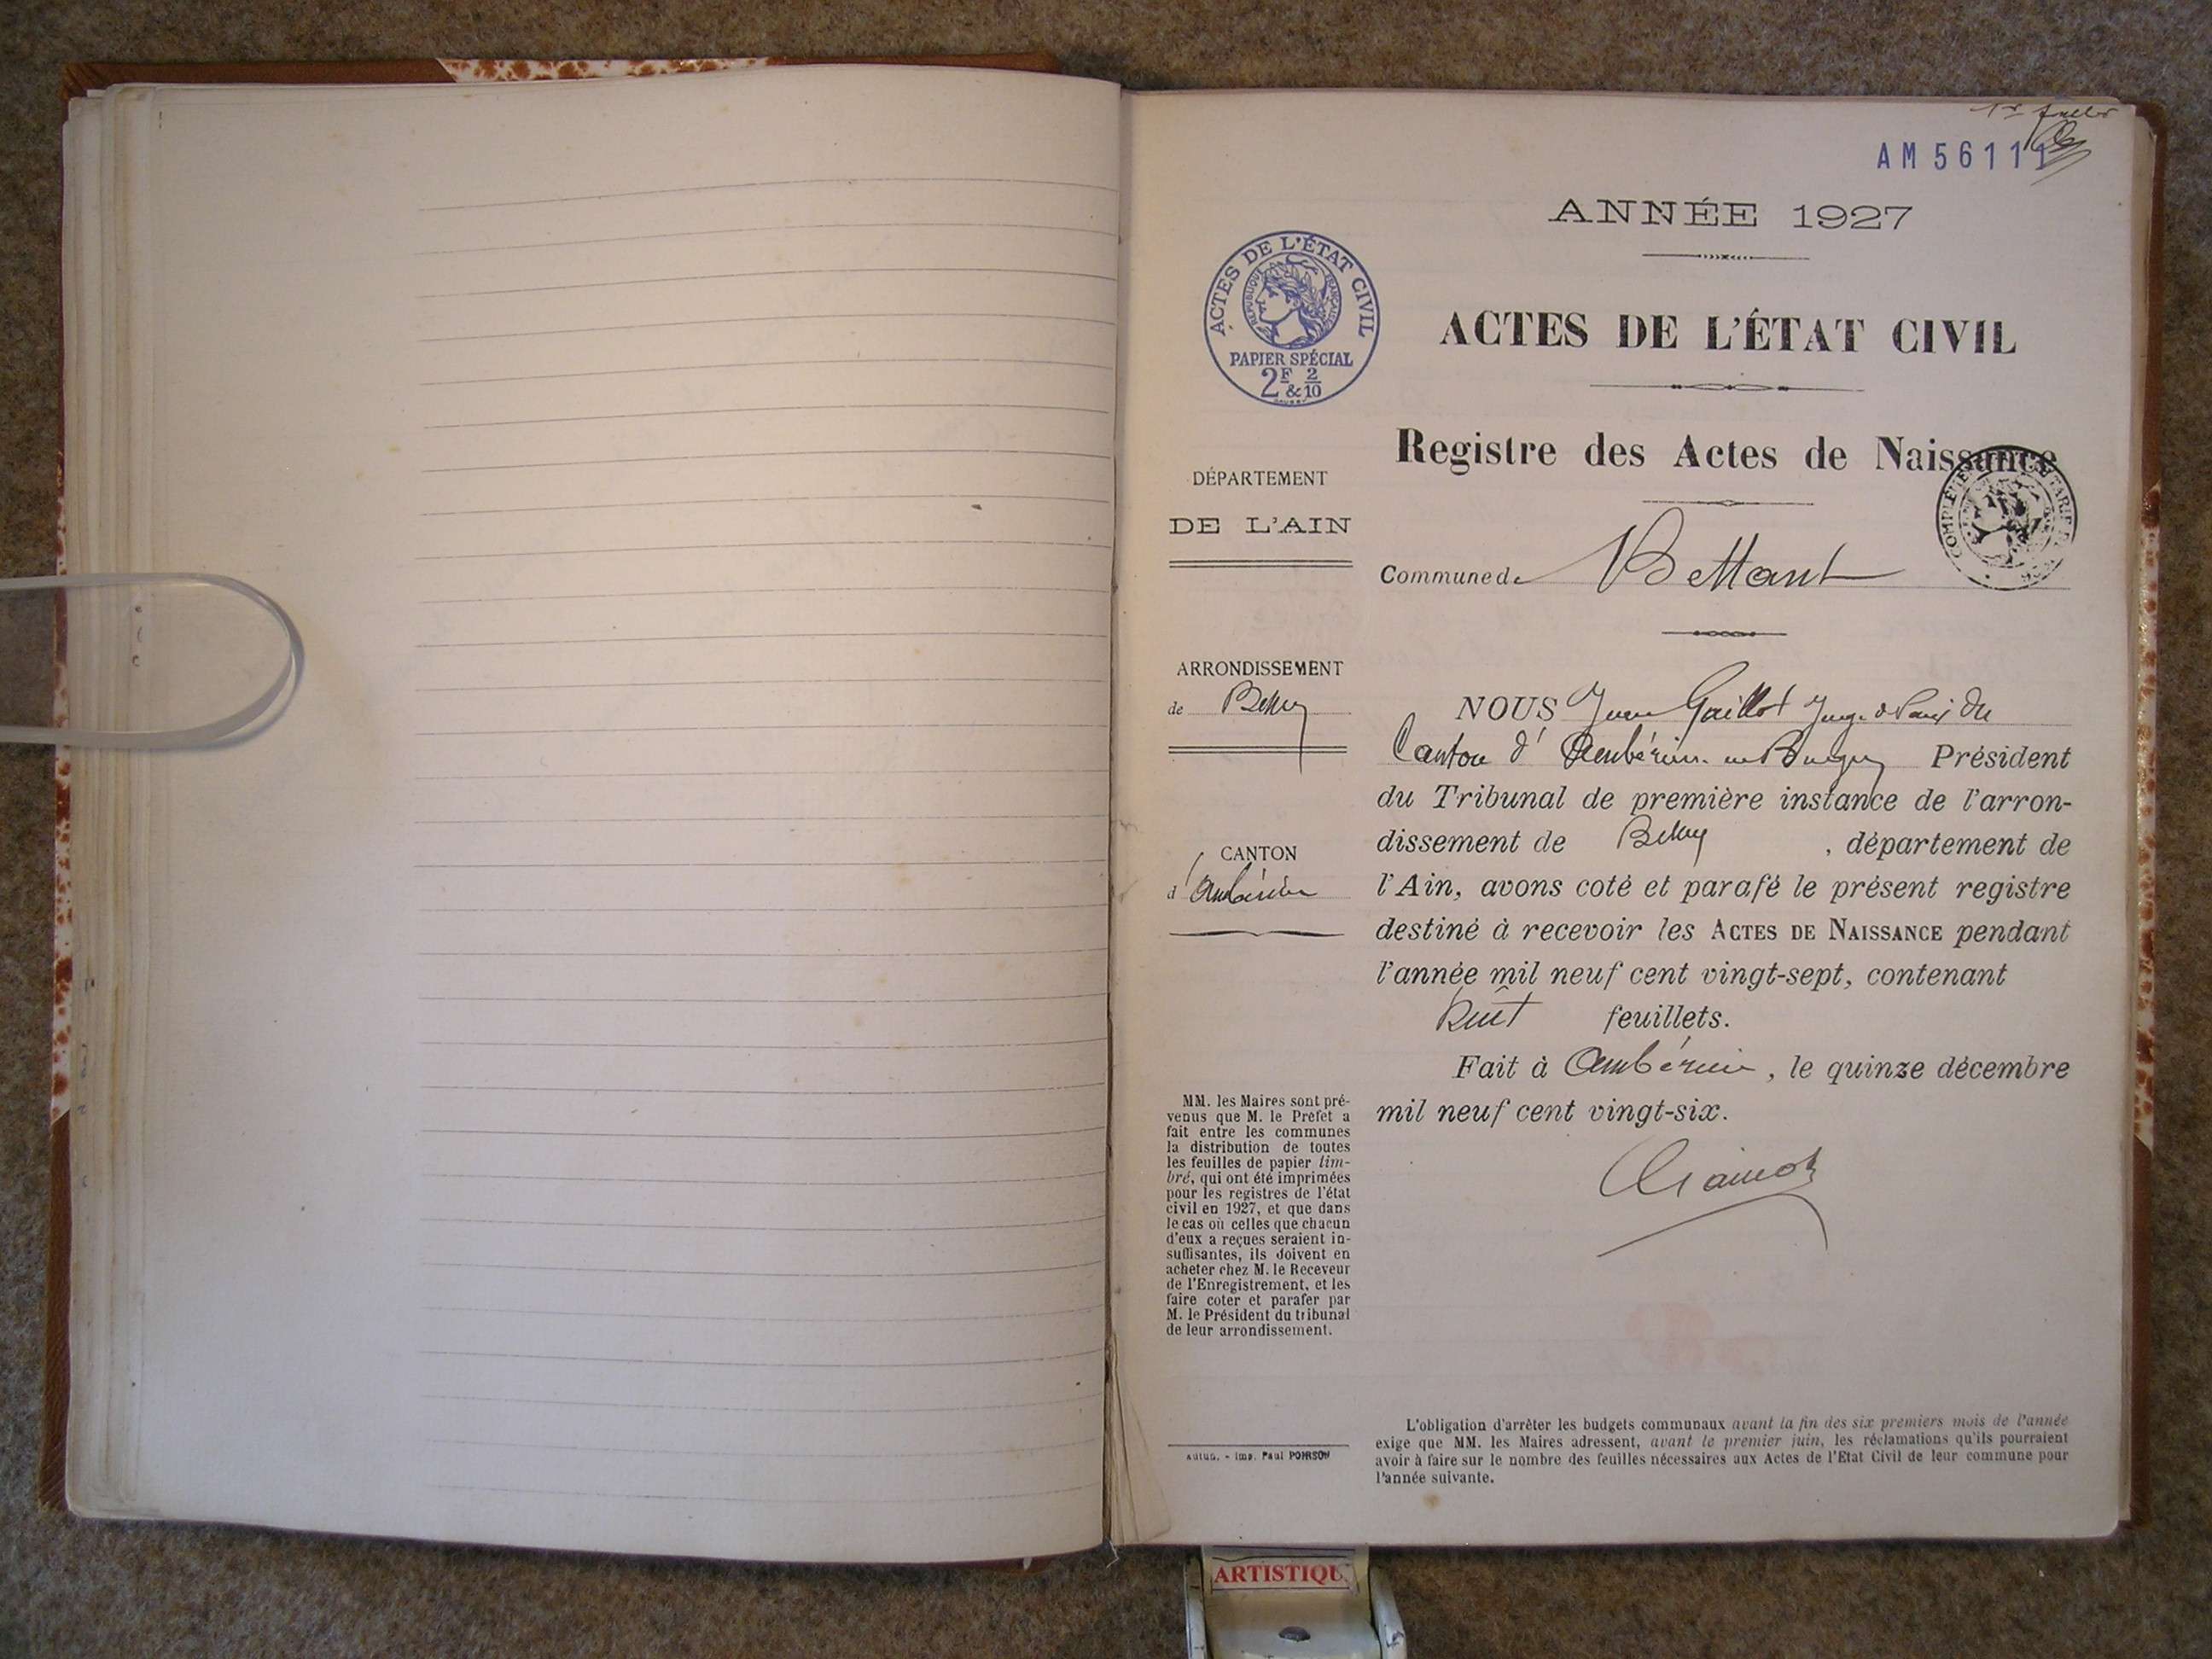 1er feuillet
AM 56111
ANNÉE 1927
ACTES DE L'ÉTAT CIVIL
RÉPUBLIQUE FRANÇAISE
PAPIER SPÉCIAL
2F & 2/10
ACTES DE L'ÉTAT CIVIL
Registre des Actes de Naissance
DÉPARTEMENT
DE L'AIN
Commune de Bettant
ARRONDISSEMENT
de Belley
CANTON
d'Ambérieu
NOUS Gaillot Juge de Paix du
Canton d'Ambérieu en Bugey Président
du Tribunal de première instance de l'arron-
dissement de Belley, département de
l'Ain, avons coté et parafé le présent registre
destiné à recevoir les ACTES DE NAISSANCE pendant
l'année mil neuf cent vingt-sept, contenant
huit feuillets.
Fait à Ambérieu, le quinze décembre
mil neuf cent vingt-six.
MM. les Maires sont pré-
venus que M. le Préfet a
fait entre les communes
la distribution de toutes
les feuilles de papier tim-
bré, qui ont été imprimées
pour les registres de l'état
civil en 1927, et que dans
le cas où celles que chacun
d'eux a reçues seraient in-
suffisantes, ils doivent en
acheter chez M. le Receveur
de l'Enregistrement, et les
faire coter et parafer par
M. le Président du tribunal
de leur arrondissement.
Autun. - Imp. Paul POIRSON
L'obligation d'arrêter les budgets communaux avant la fin des six premiers mois de l'année
exige que MM. les Maires adressent, avant le premier juin, les réclamations qu'ils pourraient
avoir à faire sur le nombre des feuilles nécessaires aux Actes de l'Etat Civil de leur commune pour
l'année suivante.
ARTISTIQU